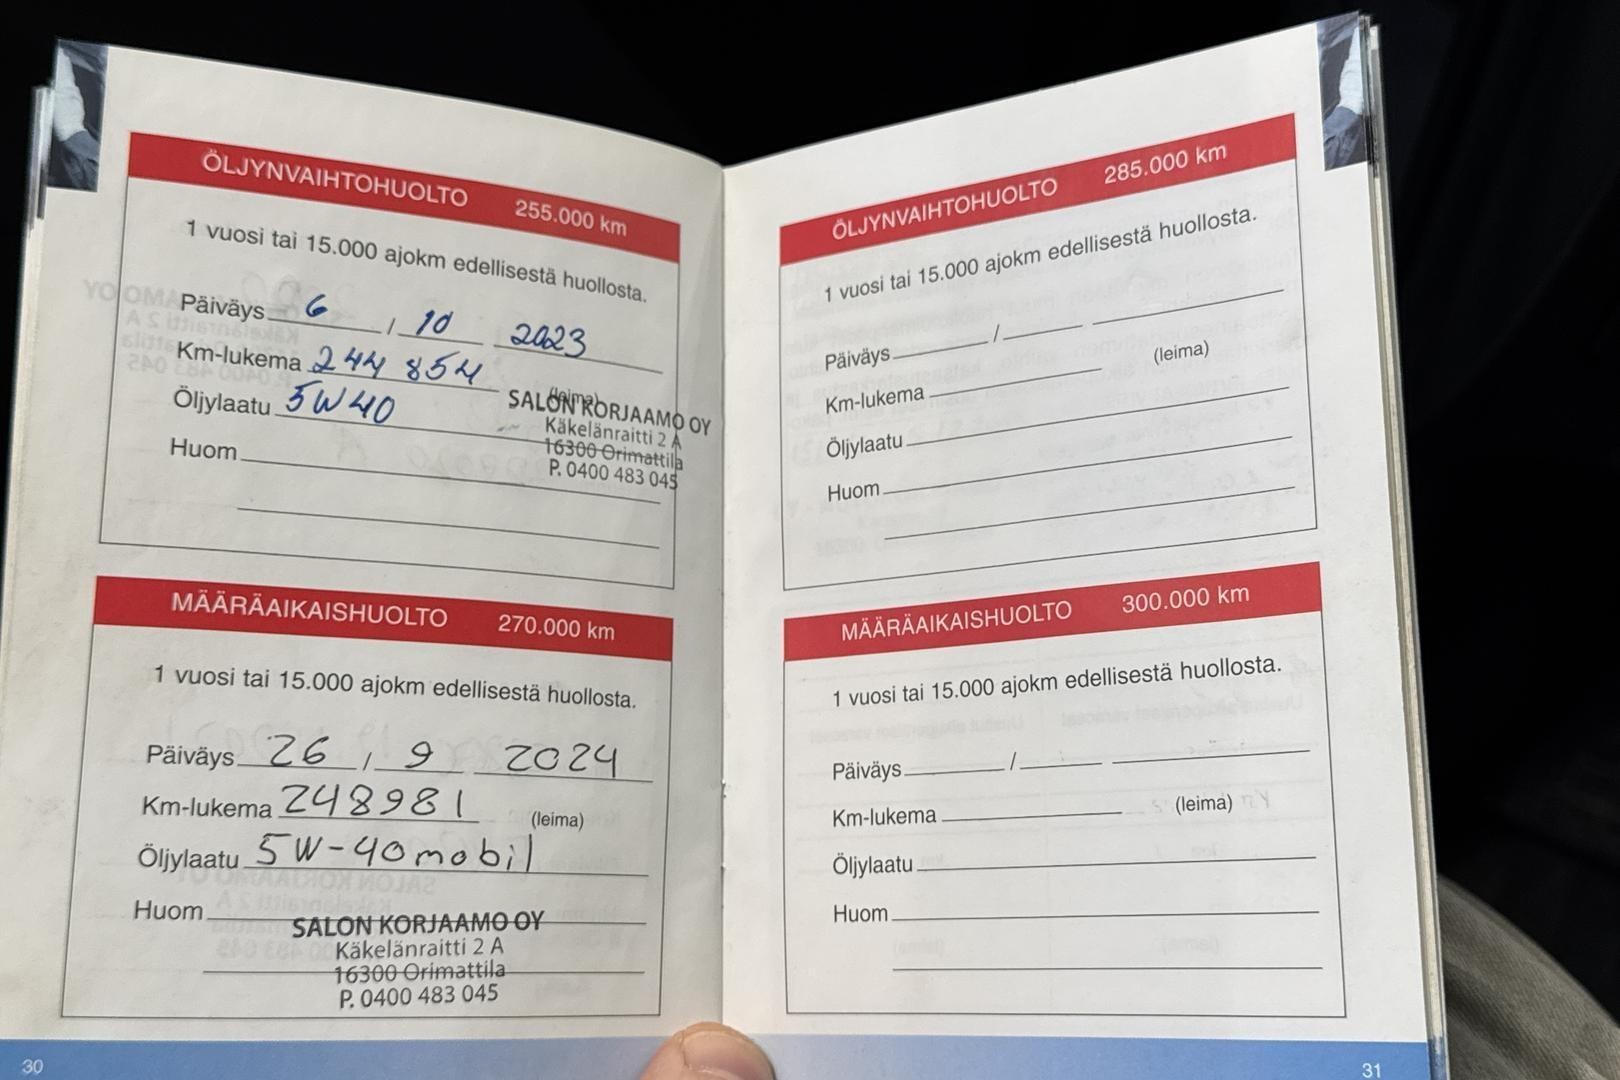 ÖLJYNVAIHTOHUOLTO 255.000 km
1 vuosi tai 15.000 ajokm edellisestä huollosta.
Päiväys 6 / 10 2023
Km-lukema 244 854 (leima)
Öljylaatu 5W40
SALON KORJAAMO OY
Käkelänraitti 2 A
16300 Orimattila
P. 0400 483 045
Huom
MÄÄRÄAIKAISHUOLTO 270.000 km
1 vuosi tai 15.000 ajokm edellisestä huollosta.
Päiväys 26 / 9 2024
Km-lukema 248981 (leima)
Öljylaatu 5W-40 mobil
Huom
SALON KORJAAMO OY
Käkelänraitti 2 A
16300 Orimattila
P. 0400 483 045
30
ÖLJYNVAIHTOHUOLTO 285.000 km
1 vuosi tai 15.000 ajokm edellisestä huollosta.
Päiväys /
Km-lukema (leima)
Öljylaatu
Huom
MÄÄRÄAIKAISHUOLTO 300.000 km
1 vuosi tai 15.000 ajokm edellisestä huollosta.
Päiväys /
Km-lukema (leima)
Öljylaatu
Huom
31